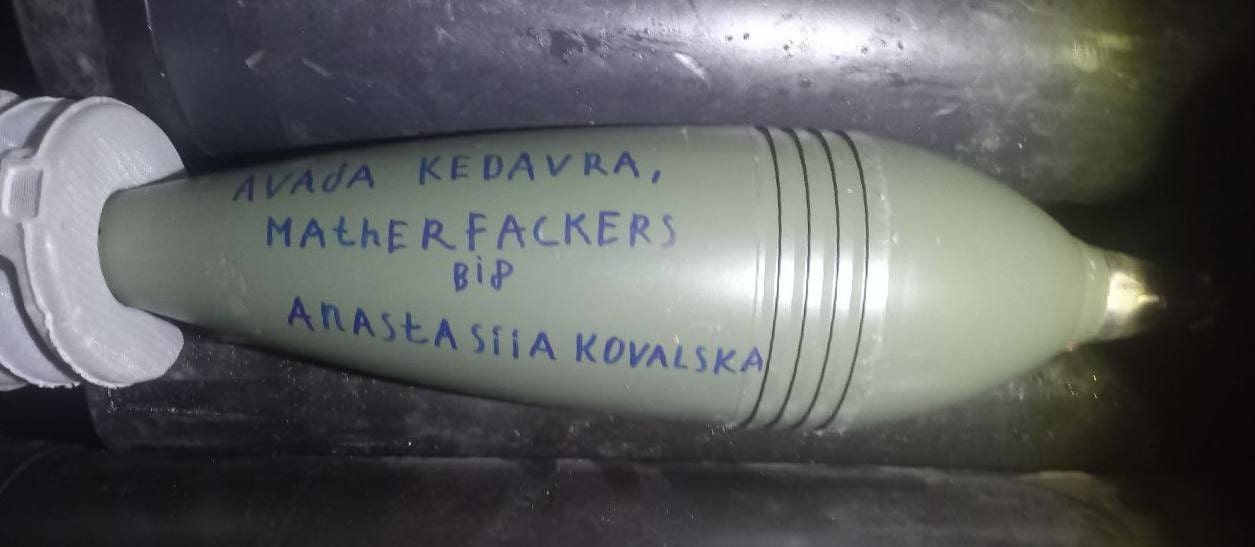 AVAdA KEDAVRA,
MAthERFACKERS
Bi8
ANAStASiiA KOVALSKA